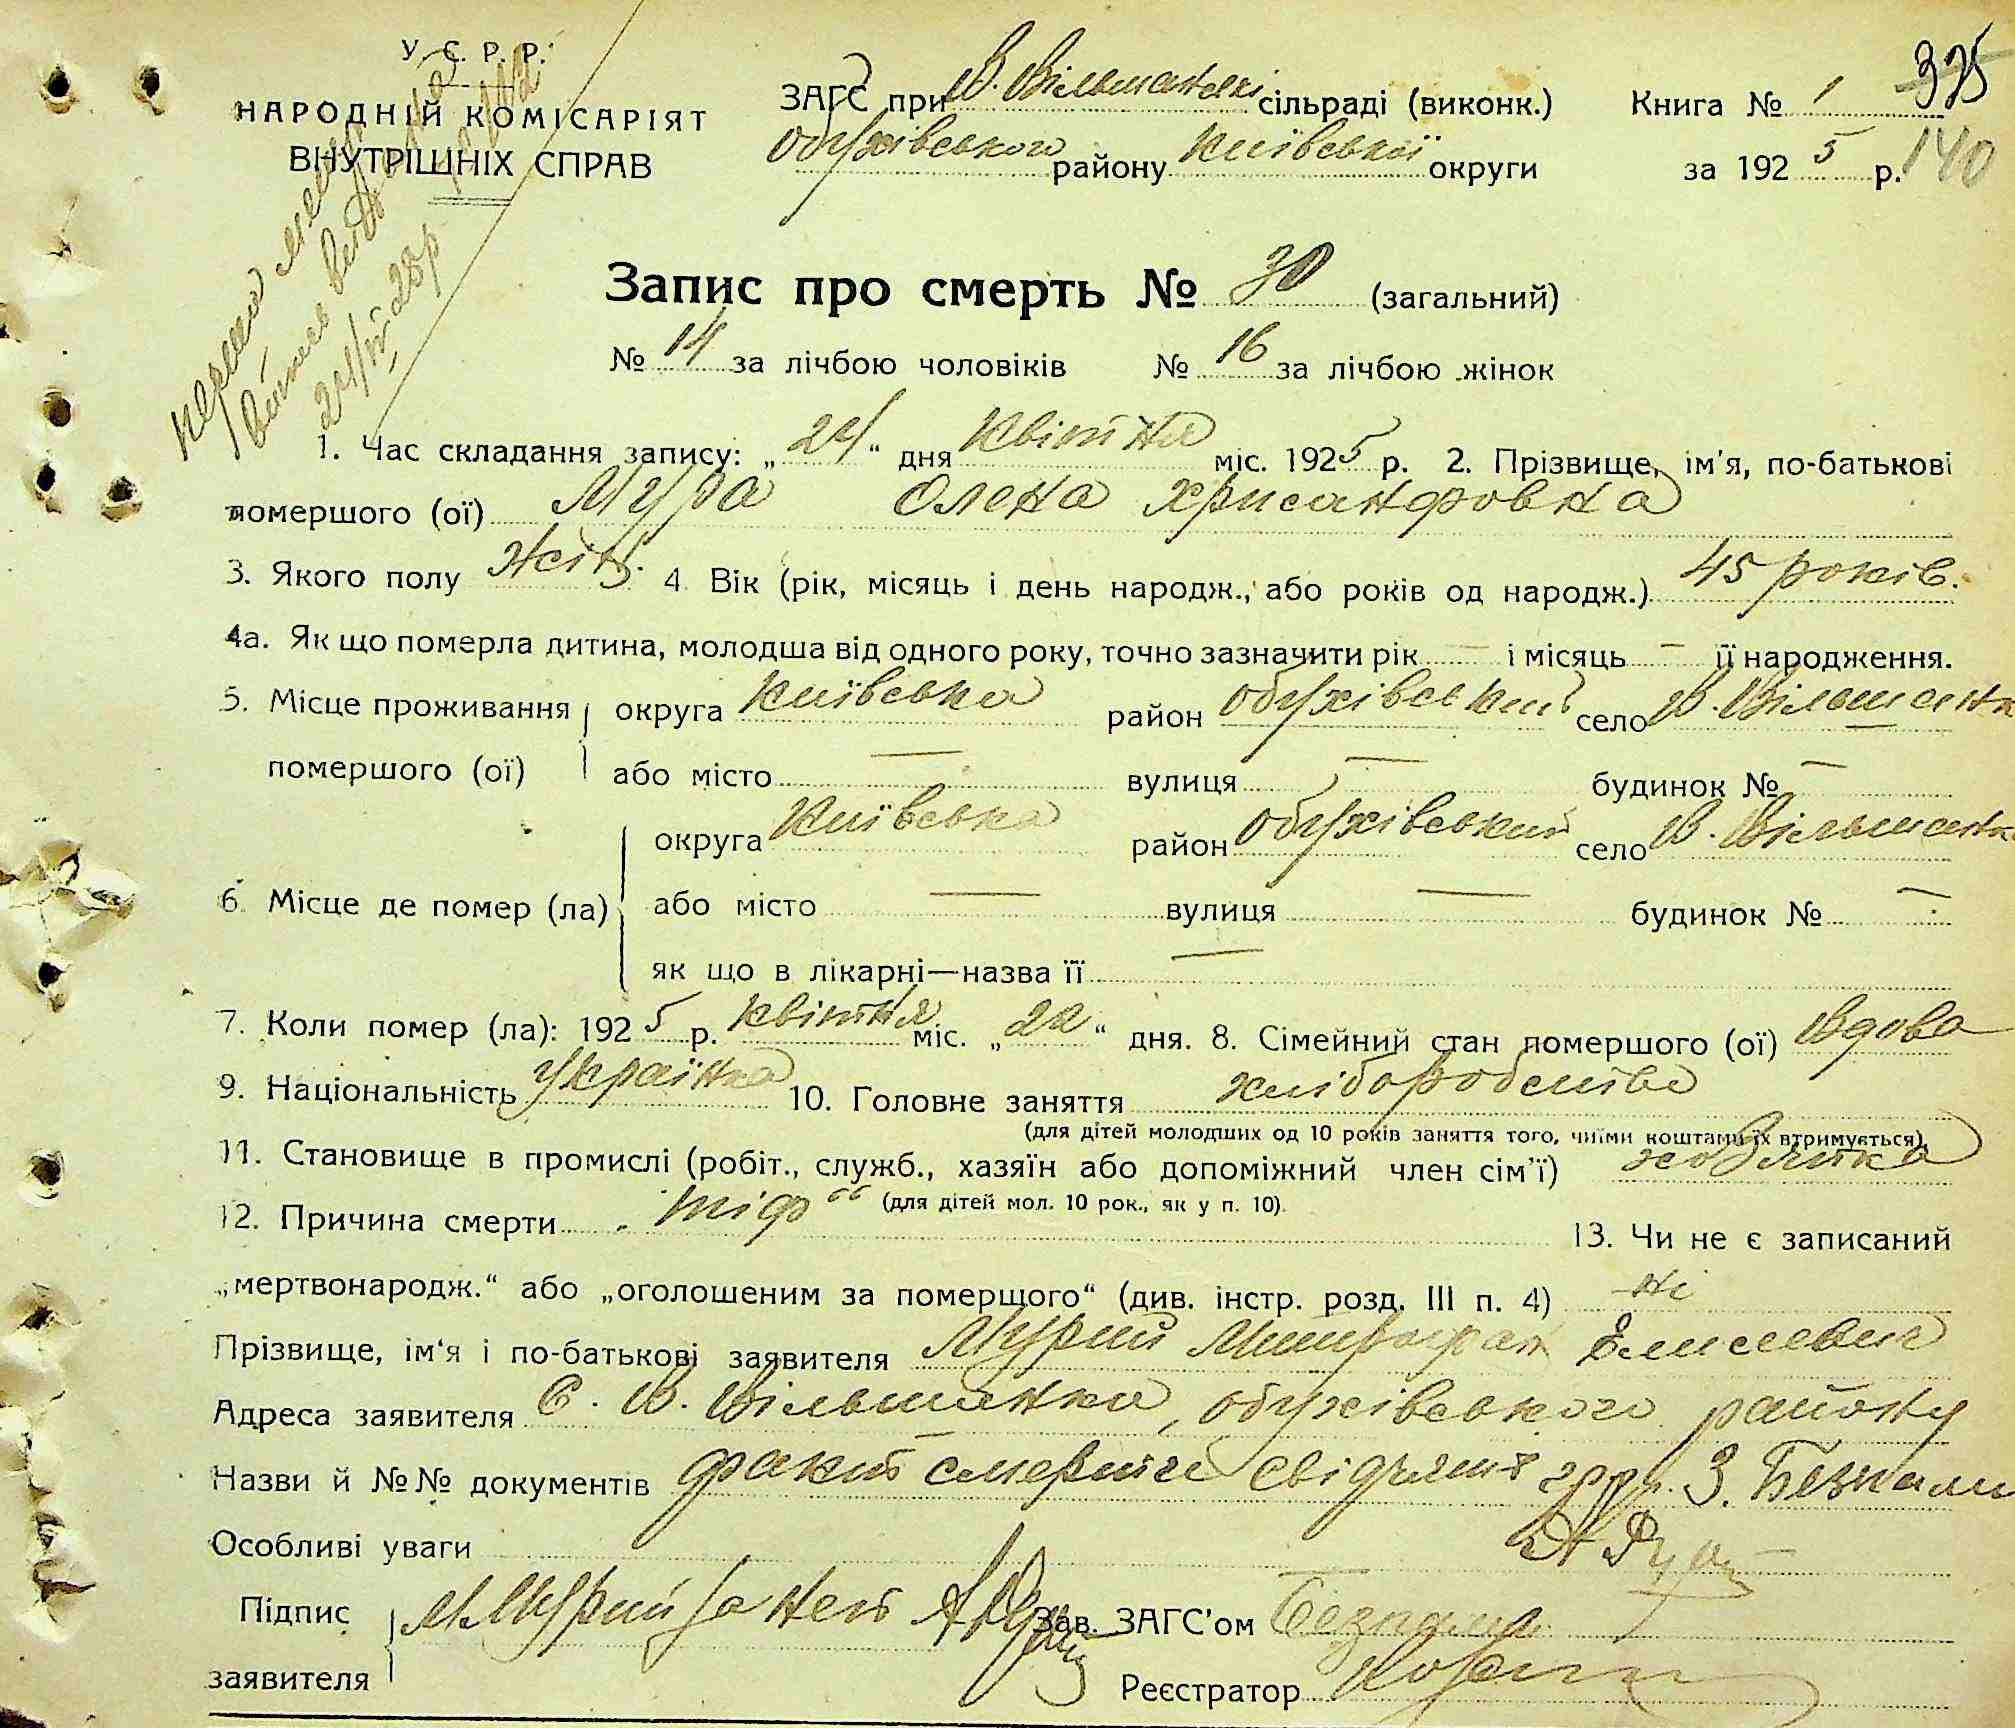 У. С. Р. Р.
НАРОДНІЙ КОМІСАРІЯТ
ВНУТРІШНІХ СПРАВ
ЗАГС при В. Вільшанській сільраді (виконк.)
Обухівського району Київської округи
Книга № 1
375
за 1925 р.
140
24/IV-25р
Запис про смерть № 30 (загальний)
№ 14 за лічбою чоловіків № 16 за лічбою жінок
1. Час складання запису: „24“ дня Квітня міс. 1925 р. 2. Прізвище, ім'я, по-батькові
помершого (ої) Мура Олена Хрисанфовна
3. Якого полу жін. 4. Вік (рік, місяць і день народж., або років од народж.) 45 років.
4а. Як що померла дитина, молодша від одного року, точно зазначити рік — і місяць — її народження.
5. Місце проживання округа Київська район Обухівський село В. Вільшанка
помершого (ої) або місто — вулиця — будинок № —
округа Київська район Обухівський село В. Вільшанка
6. Місце де помер (ла) або місто — вулиця — будинок № —
як що в лікарні—назва її —
7. Коли помер (ла): 1925 р. Квітня міс. „22“ дня. 8. Сімейний стан помершого (ої) Вдова
9. Національність Українка 10. Головне заняття хліборобство
(для дітей молодших од 10 років заняття того, чиїми коштами їх втримується).
11. Становище в промислі (робіт., служб., хазяїн або допоміжний член сім'ї) хазяйка
(для дітей мол. 10 рок., як у п. 10).
12. Причина смерти „тіф“ 13. Чи не є записаний
„мертвонародж.“ або „оголошеним за померщого“ (див. інстр. розд. III п. 4) ні
Прізвище, ім'я і по-батькові заявителя Мурий Митрофан Елисеевич
Адреса заявителя С. В. Вільшанка, Обухівського району
Назви й №№ документів факт смерти свідчить гр. З. Безпали
Особливі уваги
Підпис заявителя М Мурий за него Зав. ЗАГС'ом Безпалий
Реєстратор